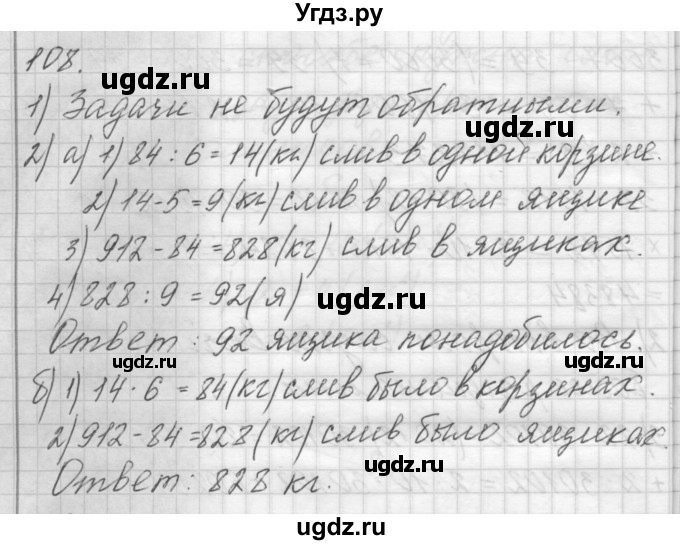 Угдз.ру
108.
1) Задачи не будут обратными.
2) а) 1) 84 : 6 = 14 (кг) слив в одной корзине.
2) 14 - 5 = 9 (кг) слив в одном ящике
3) 912 - 84 = 828 (кг) слив в ящиках.
4) 828 : 9 = 92 (я)
Ответ: 92 ящика понадобилось.
б) 1) 14 · 6 = 84 (кг) слив было в корзинах.
2) 912 - 84 = 828 (кг) слив было ящиках.
Ответ: 828 кг.
ugdz.ru
ugdz.ru
ugdz.ru
ugdz.ru
ugdz.ru
ugdz.ru
ugdz.ru
ugdz.ru
ugdz.ru
ugdz.ru